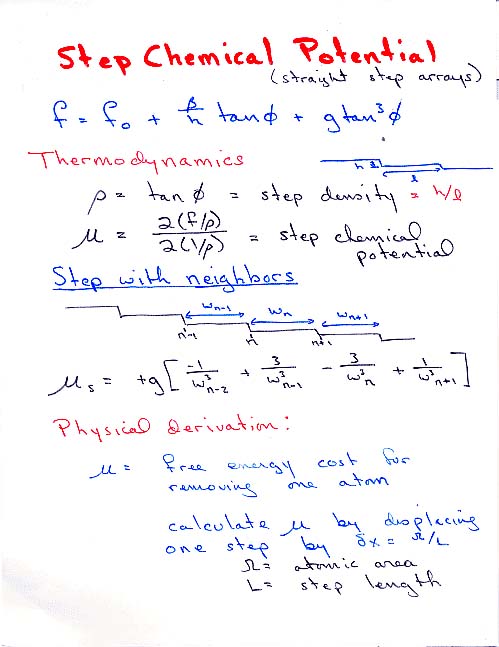 Step Chemical Potential
(straight step arrays)
f = f₀ + β/h tanϕ + g tan³ϕ
Thermodynamics
h l
ρ = tan ϕ = step density = h/l
μ = ∂(f/ρ)/∂(1/ρ) = step chemical
potential
Step with neighbors
wn-1 wn wn+1
n-1 n n+1
μs = +g[-1/w³n-2 + 3/w³n-1 - 3/w³n + 1/w³n+1]
Physical derivation:
μ = free energy cost for
removing one atom
calculate μ by displacing
one step by δx = Ω/L
Ω = atomic area
L = step length